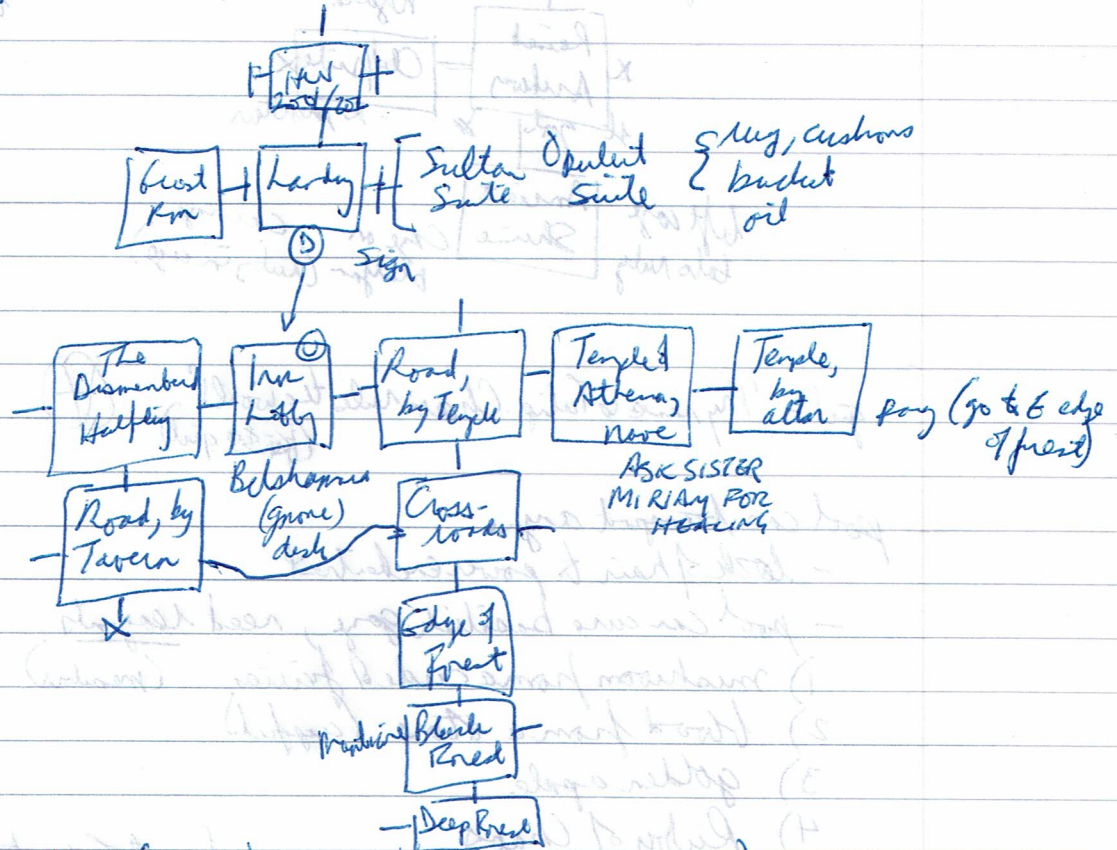 Guest
Rm
Landing
Sultan
Suite
Opulent
Suite
rug, cushions
bucket
oil
D
Sign
The
Dismembered
Halfling
U
Inn
Lobby
Road,
by Temple
Temple of
Athena,
nave
Temple,
by
altar
Pray (go to E edge
of forest)
(gnome)
desk
ASK SISTER
MIRIAM FOR
HEALING
Road, by
Tavern
Cross-
roads
Edge of
Forest
Black
Forest
Deep Forest